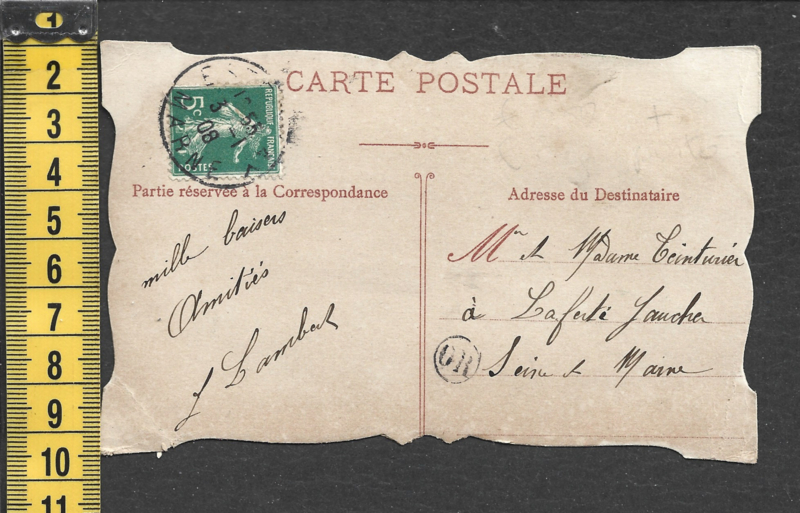 1
2
3
4
5
6
7
8
9
10
11
CARTE POSTALE
5c
REPUBLIQUE FRANÇAISE
POSTES
MARNE
08
Partie réservée à la Correspondance
Adresse du Destinataire
mille baisers
Amitiés
J Lambert
Mr et Madame Teinturier
à Laferté Gaucher
OR
Seine et Marne